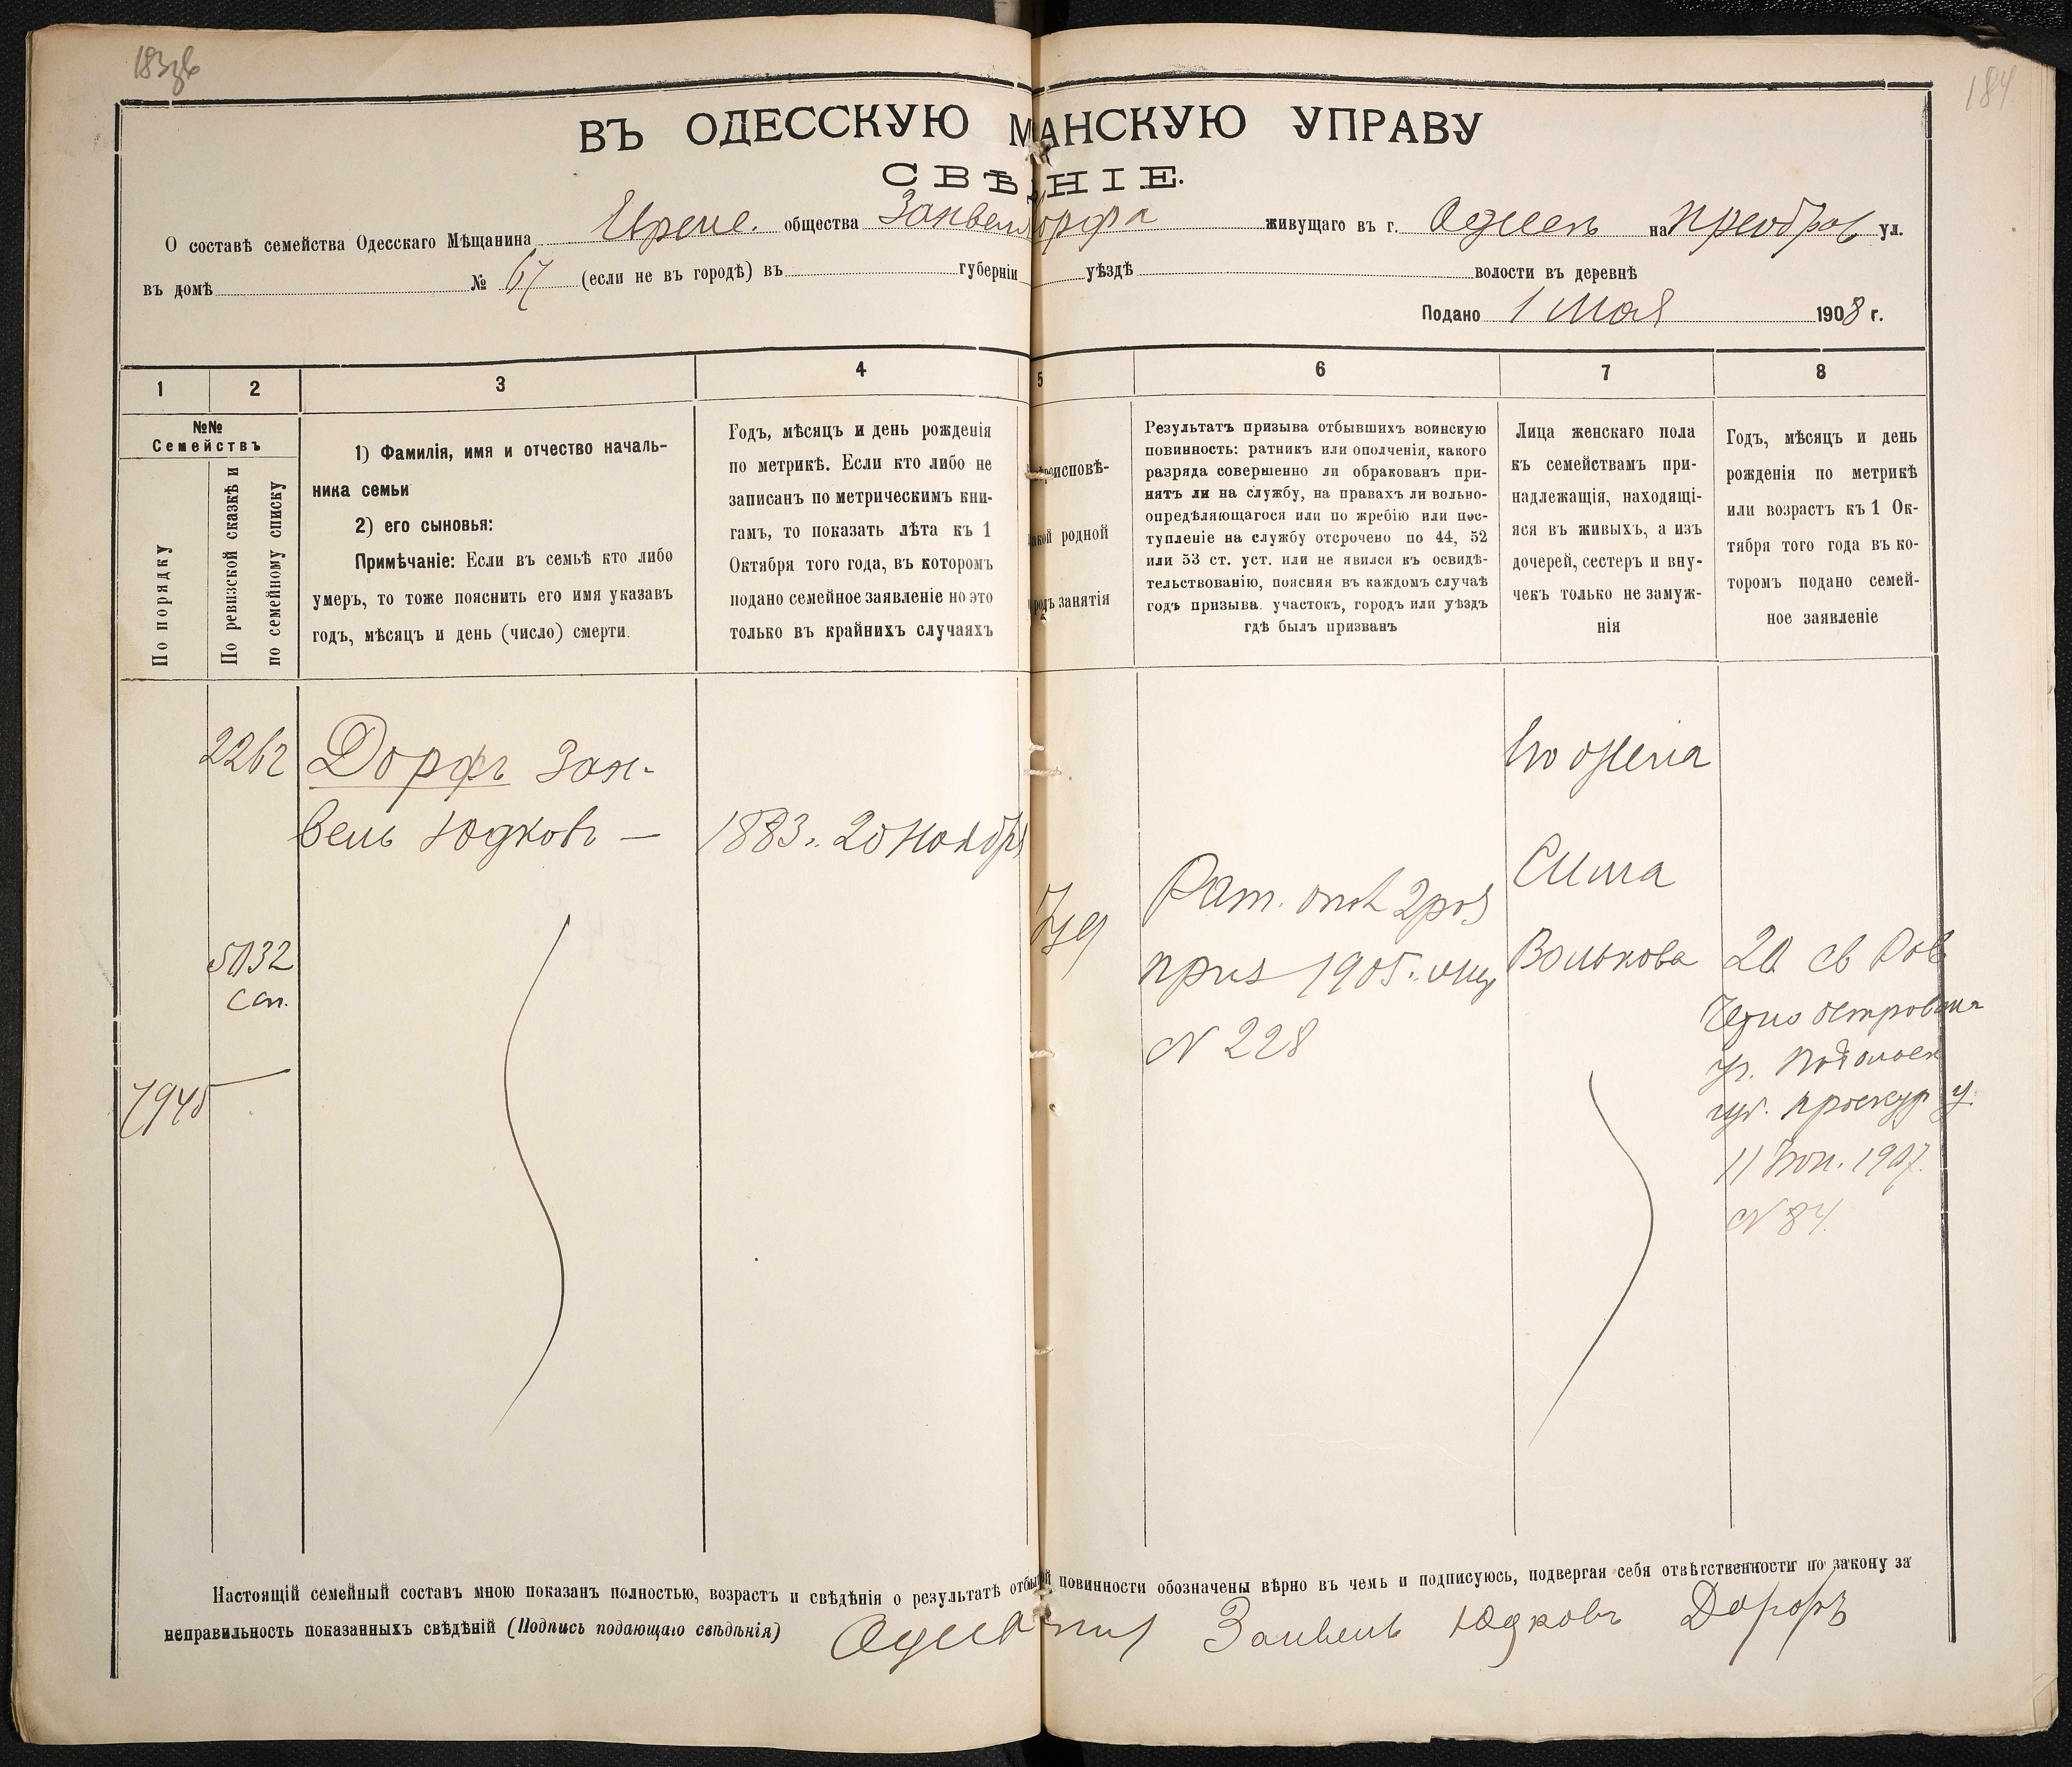 183об
184
ВЪ ОДЕССКУЮ М АНСКУЮ УПРАВУ
СВѢ НІЕ.
О составѣ семейства Одесскаго Мѣщанина Евреис. общества Занвель Дорфа живущаго въ г. Одессѣ на Преобраз ул.
въ домѣ № 67 (если не въ городѣ) въ губерніи уѣздѣ волости въ деревнѣ
Подано 1 Мая 1908 г.
1 2 3 4 5 6 7 8
№№
Семействъ
По порядку
По ревизской сказкѣ и
по семейному списку
1) Фамилія, имя и отчество началь-
ника семьи
2) его сыновья:
Примѣчаніе: Если въ семьѣ кто либо
умеръ, то тоже пояснить его имя указавъ
годъ, мѣсяцъ и день (число) смерти.
Годъ, мѣсяцъ и день рожденія
по метрикѣ. Если кто либо не
записанъ по метрическимъ кни-
гамъ, то показать лѣта къ 1
Октября того года, въ которомъ
подано семейное заявленіе но это
только въ крайнихъ случаяхъ
роисповѣ-
акой родной
родъ занятія
Результатъ призыва отбывшихъ воинскую
повинность: ратникъ или ополченія, какого
разряда совершенно ли обракованъ при-
нятъ ли на службу, на правахъ ли вольно-
опредѣляющагося или по жребію или пос-
тупленіе на службу отсрочено по 44, 52
или 53 ст. уст. или не явился къ освидѣ-
тельствованію, поясняя въ каждомъ случаѣ
годъ призыва. участокъ, городъ или уѣздъ
гдѣ былъ призванъ
Лица женскаго пола
къ семействамъ при-
надлежащія, находящі-
яся въ живыхъ, а изъ
дочерей, сестеръ и вну-
чекъ только не замуж-
нія
Годъ, мѣсяцъ и день
рожденія по метрикѣ
или возрастъ къ 1 Ок-
тября того года въ ко-
торомъ подано семей-
ное заявленіе
2262
Дорфъ Зан-
вель Юдковъ —
1883. 20 Ноября
5032
сп.
7945
Іуд
Рат. опол 2 раз
приз 1905. 
N 228
Сима
Волькова
20 св Рав
Черно Островска
Подольск
губ. Проскур у.
11 1907.
N 84.
Настоящій семейный составъ мною показанъ полностью, возрастъ и свѣдѣнія о результатѣ отбытой повинности обозначены вѣрно въ чемъ и подписуюсь, подвергая себя отвѣтственности по закону за
неправильность показанныхъ свѣдѣній (Подпись подающаго свѣдѣнія) Занвель Юдковъ Дорфъ